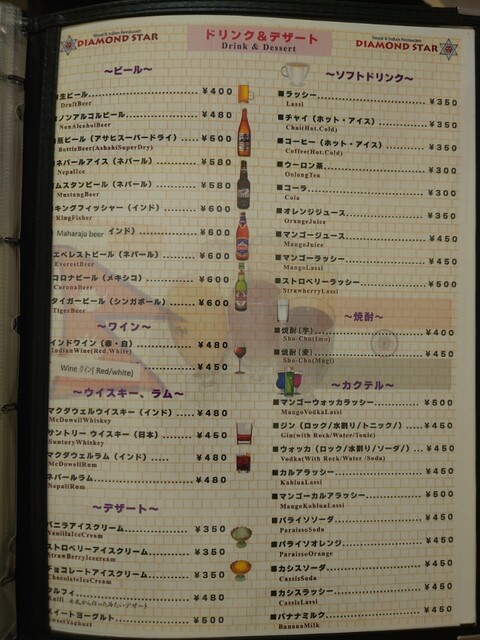 Nepal & Indian Restaurant
DIAMOND STAR
ドリンク&デザート
Drink & Dessert
Nepal & Indian Restaurant
DIAMOND STAR
～ビール～
生ビール ¥400
DraftBeer
ノンアルコルビール ¥480
NonAlcoholBeer
瓶ビール（アサヒスーパードライ） ¥500
BottleBeer(AshahiSuperDry)
ネパールアイス（ネパール） ¥580
NepalIce
ムスタンビール（ネパール） ¥580
MustangBeer
キングフィッシャー（インド） ¥600
KingFisher
Maharaja beer インド） ¥600
エベレストビール（ネパール） ¥600
EverestBeer
コロナビール（メキシコ） ¥600
CoronaBeer
タイガービール（シンガポール） ¥600
TigerBeer
～ワイン～
インドワイン（赤・白） ¥480
IndianWine(Red.White)
Wine ワイン( Red/white) ¥450
～ウイスキー、ラム～
マクダウェルウイスキー（インド） ¥480
McDowllWhiskey
サントリー ウイスキー（日本） ¥450
SuntoryWhiskey
マクダウェルラム（インド） ¥480
McDowallRum
ネパールラム ¥480
NepaliRum
～デザート～
バニラアイスクリーム ¥350
VanillaIceCream
ストロベリーアイスクリーム ¥350
StrawBeryIcecream
チョコレートアイスクリーム ¥350
ChocolateIceCream
クルフィ ¥480
Kulfi
スイートヨーグルト ¥500
SweetYoghurt
～ソフトドリンク～
■ラッシー ¥350
Lassi
■チャイ（ホット・アイス） ¥350
Chai(Hot.Cold)
■コーヒー（ホット・アイス） ¥350
Coffee(Hot.Cold)
■ウーロン茶 ¥300
OolongTea
■コーラ ¥300
Cola
■オレンジジュース ¥350
OrangeJuice
■マンゴージュース ¥450
MangoJuice
■マンゴーラッシー ¥450
MangoLassi
■ストロベリーラッシー ¥500
StrawberryLassi
～焼酎～
■焼酎(芋) ¥400
Sho-Chu(Imo)
■焼酎(麦) ¥450
Sho-Chu(Mugi)
～カクテル～
■マンゴーウォッカラッシー ¥500
MangoVodkaLassi
■ジン（ロック/水割り/トニック/） ¥450
Gin(with Rock/Water/Tonic)
■ウォッカ（ロック/水割り/ソーダ/） ¥450
Vodka(With Rock/Water /Soda)
■カルアラッシー ¥450
KahluaLassi
■マンゴーカルアラッシー ¥500
MangoKahluaLassi
■パライソソーダ ¥450
ParaisoSoda
■パライソオレンジ ¥450
ParaisoOrange
■カシスソーダ ¥450
CassisSoda
■カシスラッシー ¥450
CassisLassi
■バナナミルク ¥450
BananaMilk